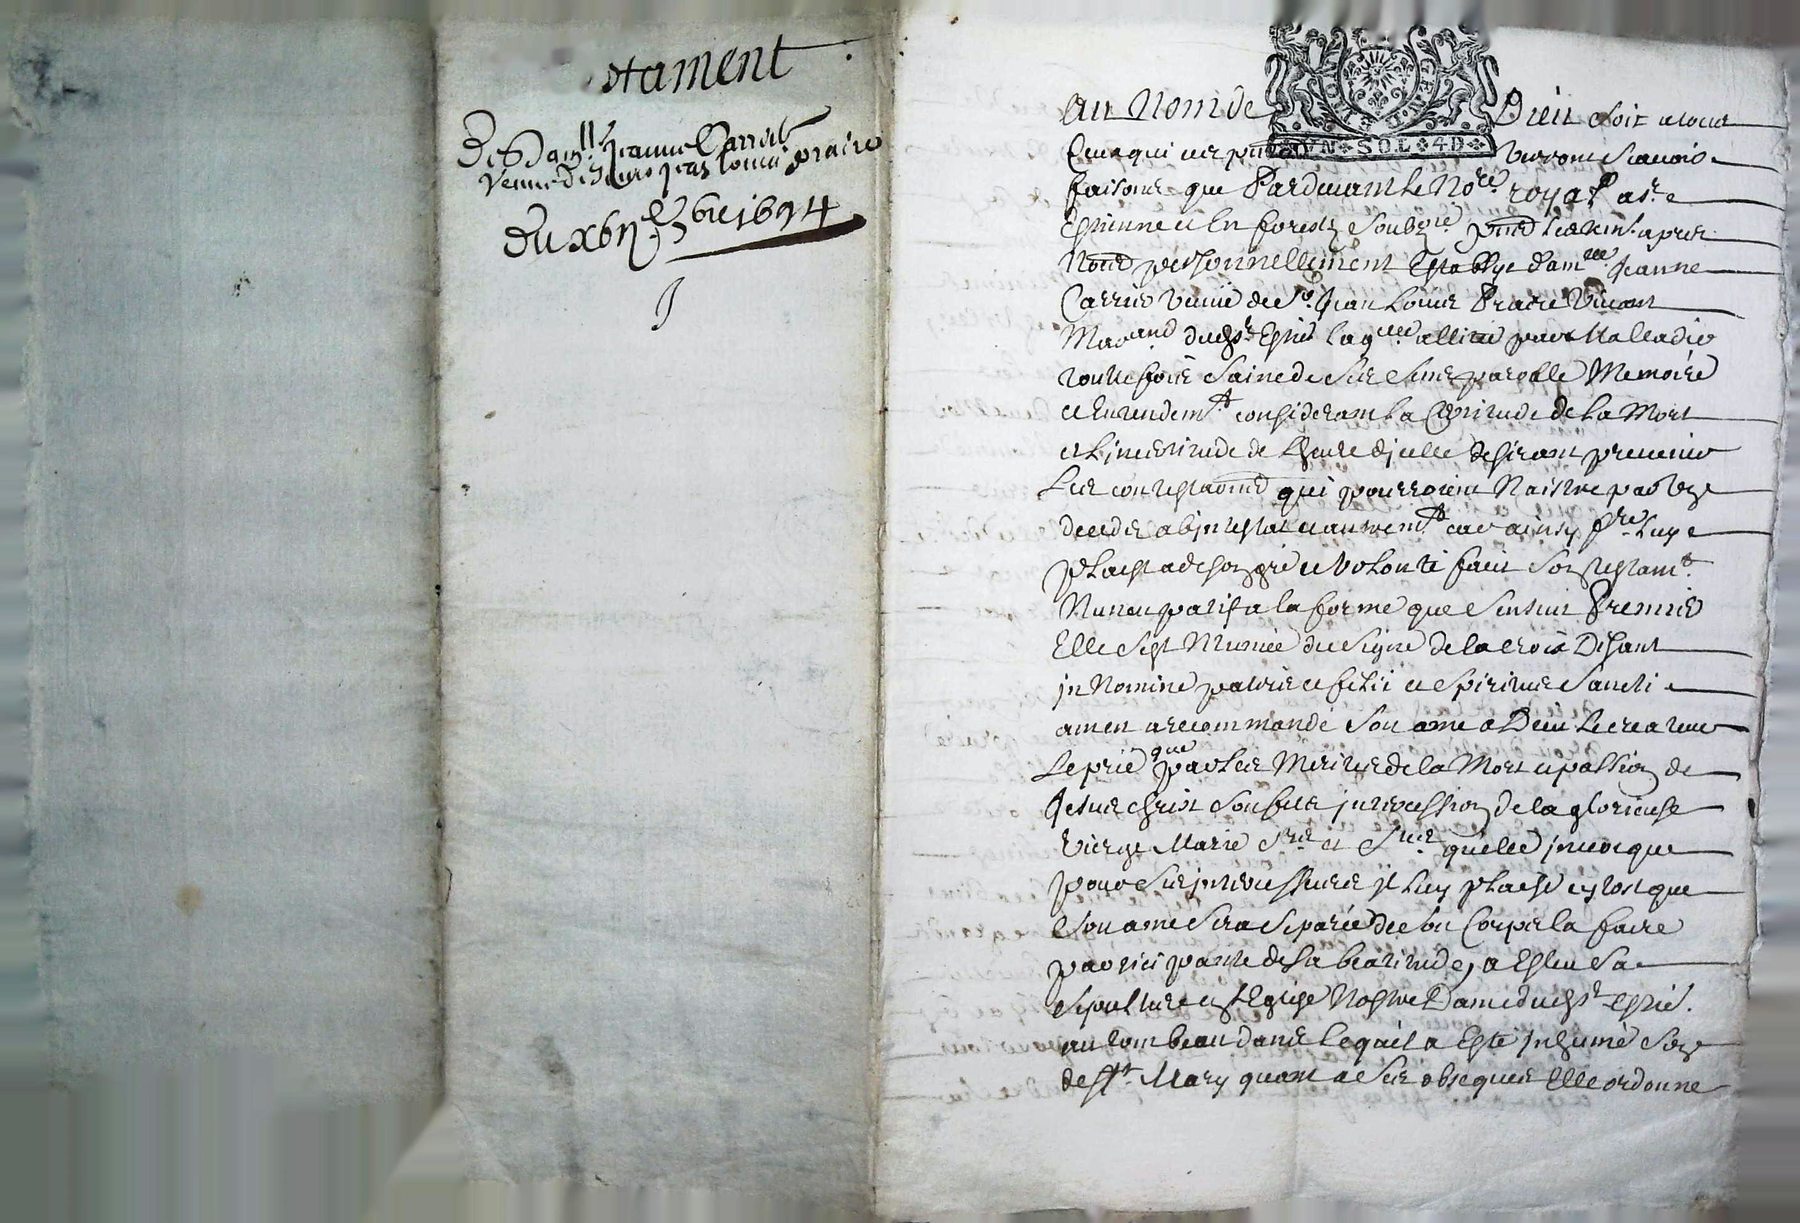 tament
De Dam.lle Jeanne Carrie
Veuve de Sieur Jean Louis praire
Du xbij.e 1694
GEN · DE
UN · SOL · 4D
Au Nom de Dieu soit a tous
Ceux qui ces pntes verront scavoir
faisons que Pardevant le No.re royal a St
Estienne et En forestz soubz.né pntz Les tesm. apres
Nomes personnellement Establye dam.lle Jeanne
Carrie veuve de Sr. Jean Louis Praire vivant
Marchand dud St Estiene laq.lle allitée par Malladie
touttefois saine de ses sens parolle Memoire
et Entendem.t considerant la Certitude de la Mort
et L'incertitude de Lheure dicelle desirant prevenir
Les contestaons qui pourroient Naistre par
deceder abintestat et autrem.t car ainsy luy
plaist a de son gré et volonté faict son testam.t
Nuncupatif a la forme que sensuit Premier
Elle sest Muniée du Signe de la croix Disant
in Nomine patris et filii et Spiritus Sancti
amen a recommandé son ame a Dieu Le createur
Le prie que par les Merites de la Mort et passion de
Jesus christ son fils intercession de la glorieuse
vierge Marie Sts et Stes quelle jnvoque
pour ses intercesseurs il luy plaise sytost que
son ame sera separée de son Corps la faire
participante de sa beatitude, a Esleu sa
sepulture en l'Eglise Nostre Dame dud St Estie.
au tombeau dans lequel a Esté inhumé son
deff.t Mary quant a ses obseques Elle ordonne